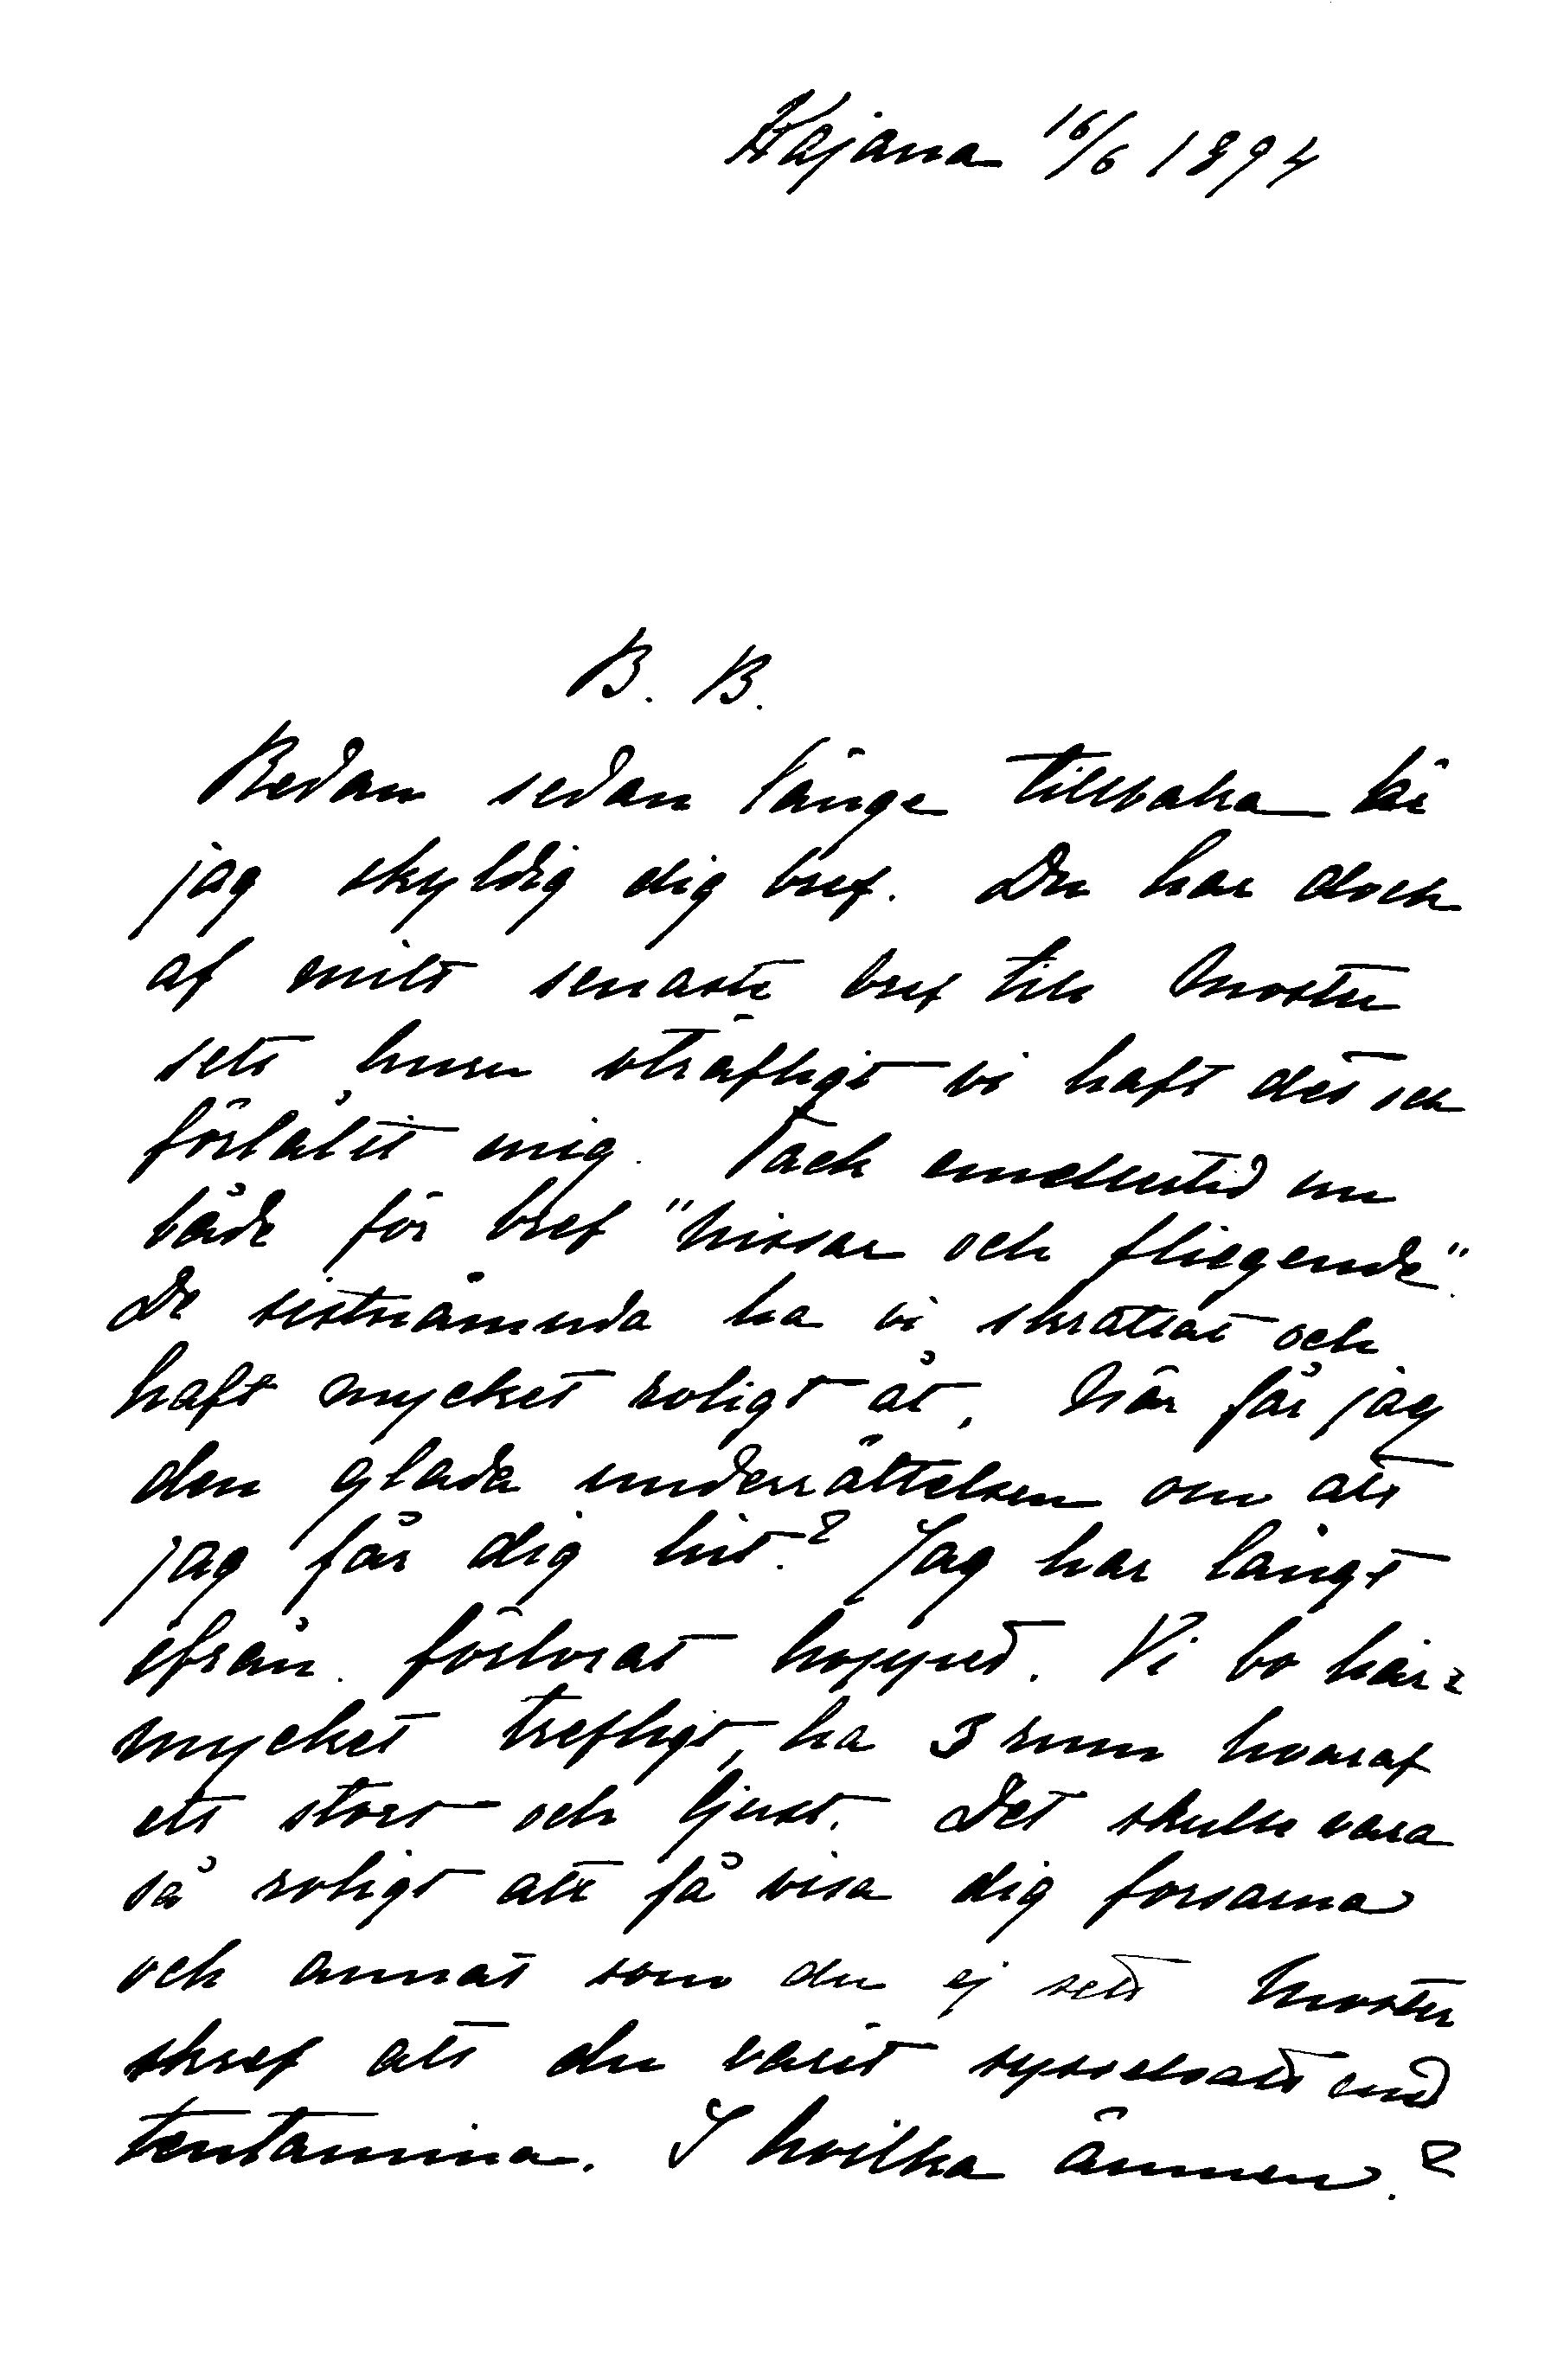 Kajana 16/6 1894
B. B.
Redan sedan länge tillbaka är
jag skyldig dig bref. Du har dock
af mitt senaste bref till Moster
sett huru sträfligt vi haft det och
förlåtit mig. Tack emellertid nu
både för bref "Nissar och fliegende".
De sistnämnda ha vi skrattat och
haft mycket roligt åt. När får jag
den glada underrättelsen om att
jag får dig hit? Jag har långt
ifrån förlorat hoppet. Vi bo här
mycket trefligt, ha 3 rum hvaraf
ett stort och ljust. Det skulle vara
så roligt att få visa dig forsarna
och annat som du ej sett Moster
skref att du varit sysselsatt med
tentamina. I hvilka ämnen?